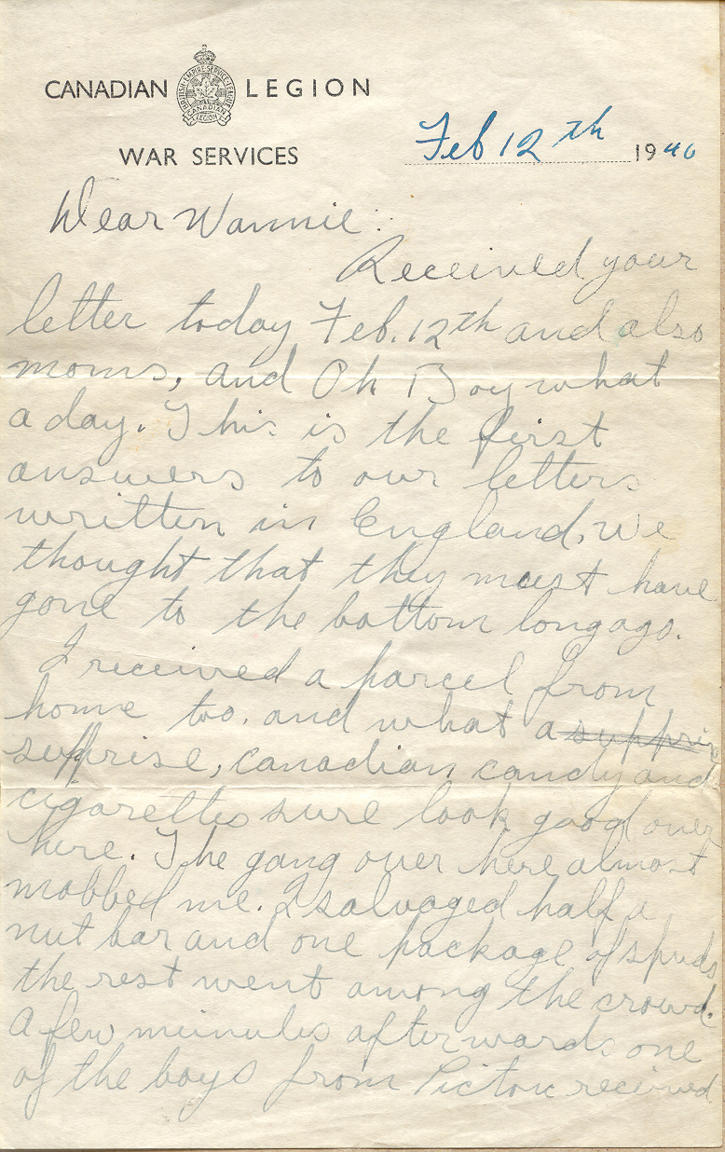 CANADIAN LEGION
BRITISH EMPIRE SERVICE LEAGUE
CANADIAN
LEGION
WAR SERVICES
Feb 12th 1940
Dear Wannie:
Received your
letter today Feb. 12th and also
moms, and Oh Boy what
a day. This is the first
answers to our letters
written in England. We
thought that they must have
gone to the bottom long ago.
I received a parcel from
home too. and what a suppris
surprise, canadian candy and
cigarettes sure look good over
here. The gang over here almost
mobbed me. I salvaged half a
nut bar and one package of spuds
the rest went among the crowd.
A few minules afterwards one
of the boys from Picton recieved